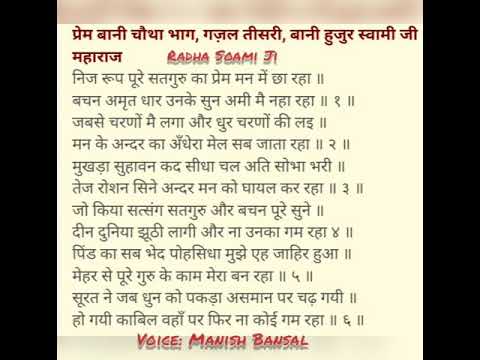 प्रेम बानी चौथा भाग, गज़ल तीसरी, बानी हुजुर स्वामी जी
महाराज Radha Soami Ji
निज रूप पूरे सतगुरु का प्रेम मन में छा रहा ॥
बचन अमृत धार उनके सुन अमी मै नहा रहा ॥ १ ॥
जबसे चरणों मै लगा और धुर चरणों की लइ ॥
मन के अन्दर का अँधेरा मेल सब जाता रहा ॥ २ ॥
मुखड़ा सुहावन कद सीधा चल अति सोभा भरी ॥
तेज रोशन सिने अन्दर मन को घायल कर रहा ॥ ३ ॥
जो किया सत्संग सतगुरु और बचन पूरे सुने ॥
दीन दुनिया झूठी लागी और ना उनका गम रहा ४ ॥
पिंड का सब भेद पोहसिधा मुझे एह जाहिर हुआ ॥
मेहर से पूरे गुरु के काम मेरा बन रहा ॥ ५ ॥
सूरत ने जब धुन को पकड़ा असमान पर चढ़ गयी ॥
हो गयी काबिल वहाँ पर फिर ना कोई गम रहा ॥ ६ ॥
Voice: Manish Bansal